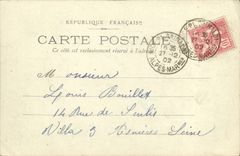 RÉPUBLIQUE FRANÇAISE
CARTE POSTALE
Ce côté est exclusivement réservé à l'adresse
27 -12
02
ALPES-MARMES
10
Monsieur
Louis Bouillet
14 Rue de Senlis
Villa 3 Asnières Seine